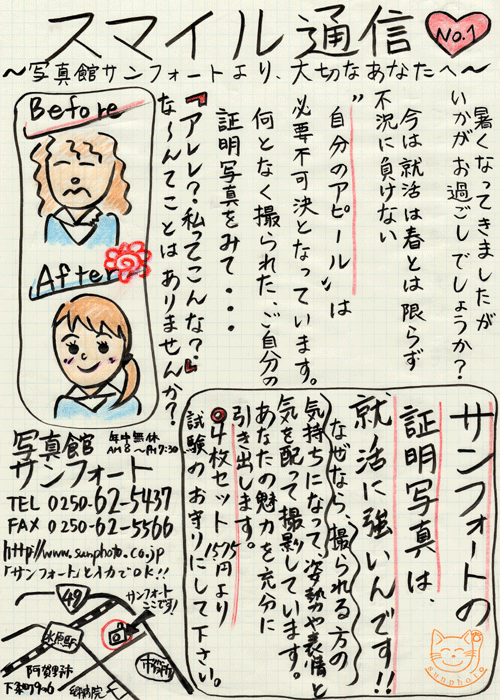 スマイル通信
No.1
〜写真館サンフォートより、大切なあなたへ〜
暑くなってきましたが
いかがお過ごしでしょうか?
今は就活は春とは限らず
不況に負けない
"自分のアピール"は
必要不可決となっています。
何となく撮られた、ご自分の
証明写真をみて・・・
『アレレ?私ってこんな?』
な〜んてことはありませんか?
Before
After
サンフォートの
証明写真は、
就活に強いんです!!
なぜなら、撮られる方の
気持ちになって、姿勢や表情と
気を配って撮影しています。
あなたの魅力を充分に
引き出します。
◎4枚セット1575円より
試験のお守りにして下さい。
写真館
年中無休
AM8〜PM7:30
サンフォート
TEL 0250-62-5437
FAX 0250-62-5566
http://www.sunphoto.co.jp
「サンフォート」と入力でOK!!
49
サンフォート
ここです!
水原駅
市役所
阿賀野市
下条町9の6
sunphoto